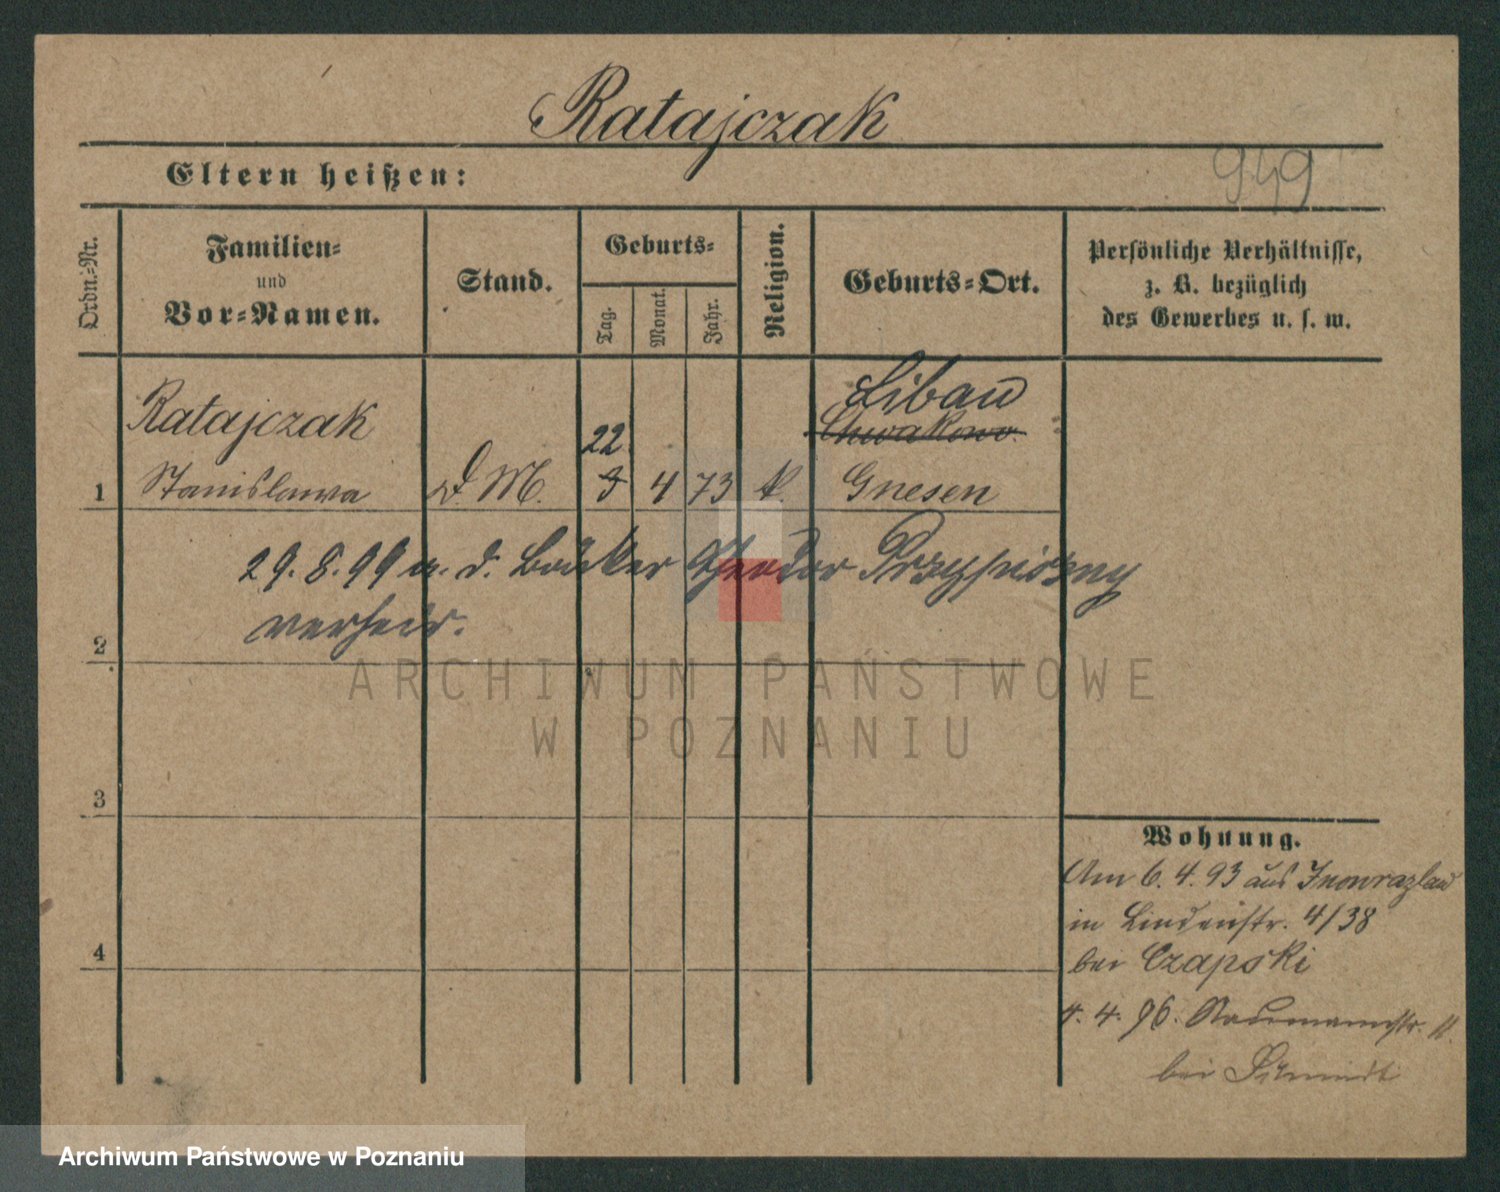 Ratajczak
949
Eltern heißen:
Ordn.=Nr.
Familien=
und
Vor=Namen.
Stand.
Geburts=
Tag.
Monat.
Jahr.
Religion.
Geburts=Ort.
Persönliche Verhältnisse,
z. B. bezüglich
des Gewerbes u. s. w.
Ratajczak
Libau
Chwalkowo
22
1 Stanislawa D. M. 3 4 73 k. Gnesen
29.8.99 m. d. Bäcker Theodor Przyspieszny
verheir.
2
ARCHIWUM PAŃSTWOWE
W POZNANIU
3
Wohnung.
Am 6.4.93 aus Inowrazlaw
in Lindenstr. 4/38
4
bei Czapski
4.4.96. Naumannstr. 11.
bei Schmidt
Archiwum Państwowe w Poznaniu